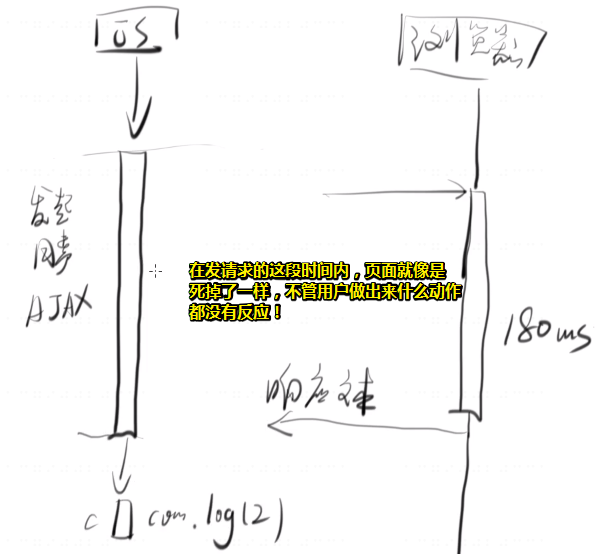 JS
浏览器
发起
同步
AJAX
在发请求的这段时间内，页面就像是
死掉了一样，不管用户做出来什么动作
都没有反应！
180ms
响应
com.log(2)